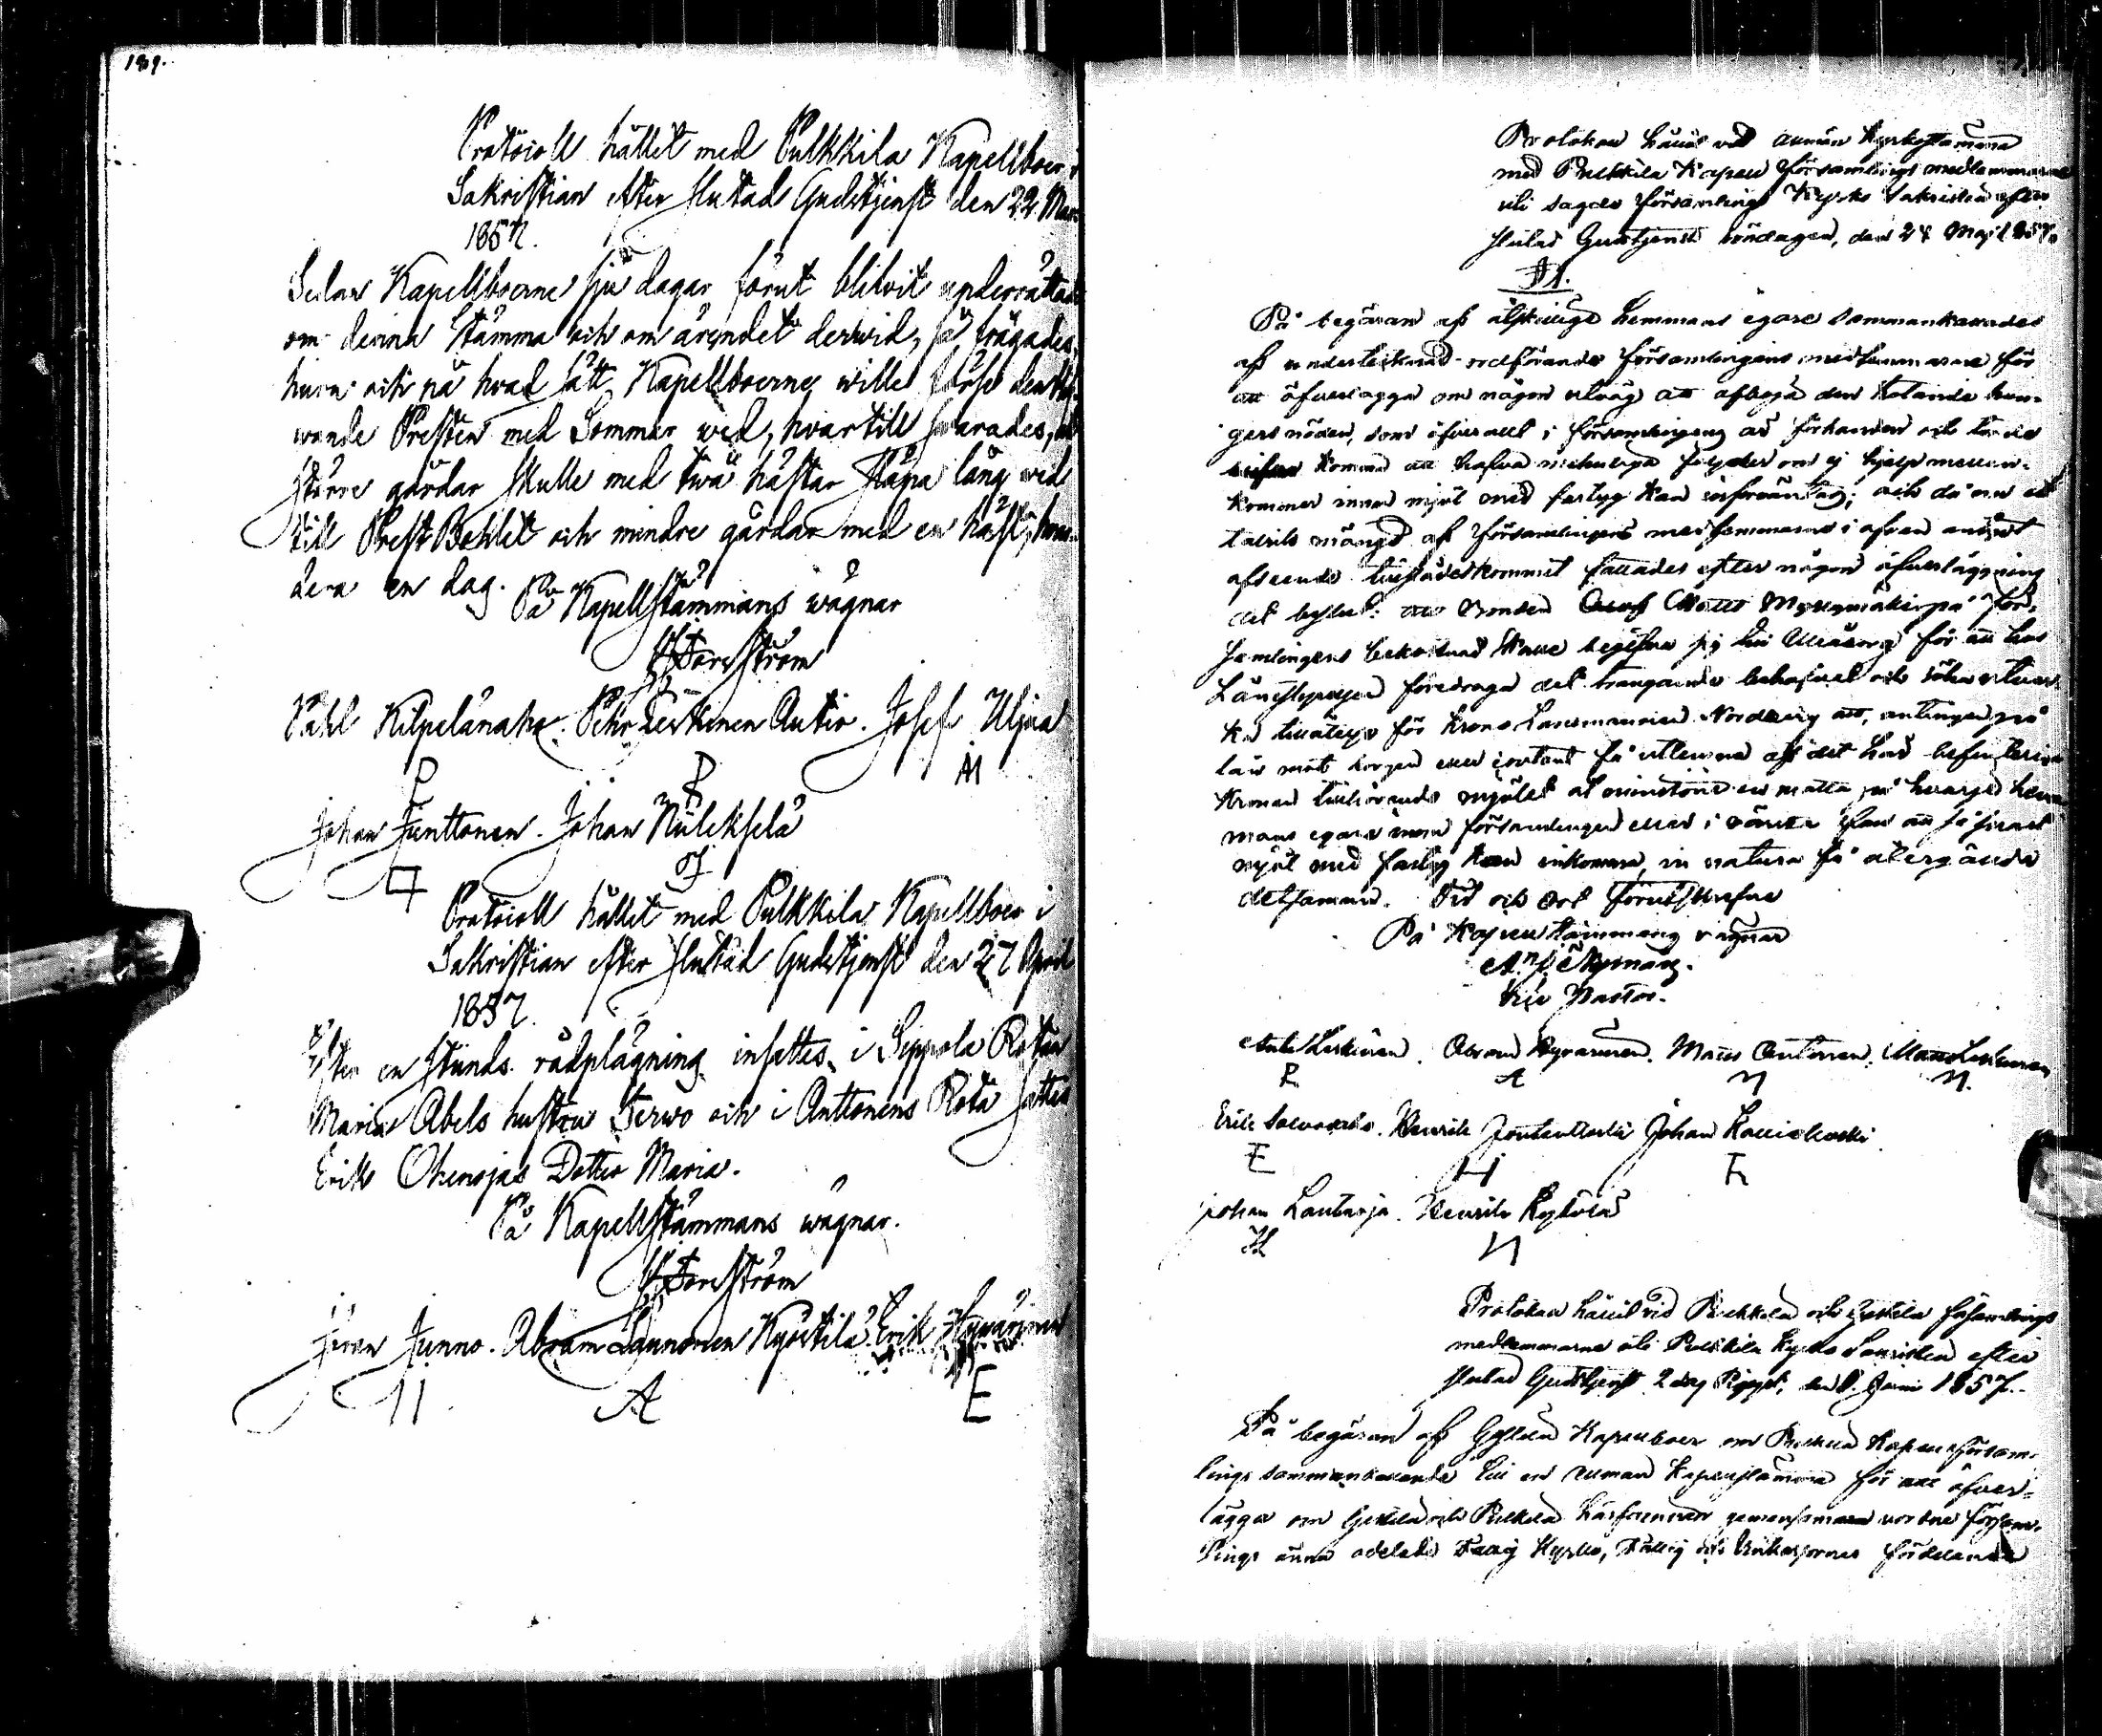 189.
Protocoll hållet med Pulkkila Kapellboer i
Sakristian efter slutad Gudstjenst den 22 Mars
1857.
Sedan Kapellboerne sju dagar förut blifvit underrättade
om denna Stämma och om ärendet dervid, så frågades,
huru och på hvad sätt Kapellboerne wille förse den
wande Presten med Sommar wed, hvartill swarades, att
större gårdar skulle med twå hästar släpa lång wed
till Prest Bohlet och mindre gårdar med en häst,
dera en dag.
På Kapellstämmans wägnar
Forsström
Påhl Kilpelänaho. Pehr Leskinen Autio. Josef Uljua
P P M
Johan Junttonen. Johan Niilekselä
Protocoll hållet med Pulkkila Kapellboer i
Sakristian efter slutad Gudstjenst den 27 April
1857.
Efter en stunds rådplägning insattes i Sippola Rotan
Maria Abels hustru Terwo och i Anttonens Rota sattes
Erik Ohenojas Dotter Maria.
På Kapellstämmans wägnar.
Forsström
Göran Junno. Abram Lännonen Kyöstilä. Erik Hyvärinen
A E
Protokoll hållet vid allmän Kyrkostämma
med Pulkkila Kapell församlings medlemmarne
uti sagde församlings Kyrko Sakristia efter
slutad Gudstjenst söndagen, den 24 Maj 1857.
§ 1.
På begäran af åtskillige hemmans egare sammankallades
af undertecknad ordförande församlingens medlemmarne för
att öfverlägga om någon utväg att afböja den hotande hun-
gers nöden, som öfverallt i församlingen är förhanden och torde
komma att hafva följder om ej hjelp mellan-
kommer innan mjöl med fartyg kan införväntas; och då nu ett
talrik mängd af församlingens medlemmarne i ofvan anfört
afseende tillstädeskommit fattades efter någon öfverläggning
det beslut: att bonden Matts på för-
samlingens bekostnad skall begifva sig till Uleåborg för att hos
Länestyrelsen föredraga det trängande behofvet och söka utver-
ka tillåtelse för Krono Länsmannen Nordberg att, antingen på
lån mot borgen eller contant få utlemna af det här befinteliga
Kronan tillhörande mjölet åtminstone en matta på hvarje hem-
mans egare inom församlingen eller i
mjöl med fartyg kan inkomma, in natura få återgälda
detsamma. Tid och ort förutskrefne
På Kapellstämmans vägnar
Nyman
Vice Pastor.
Antti Leskinen. Abram Hyvärinen. Matts Anttonen. Matts Leskinen
A
Erik Salvosalo. Henrik Johan
E H
Johan Lautaoja. Henrik
H
Protokoll hållit vid Pulkkila och Gestilä församlings
medlemmarne uti Pulkkila Kyrko Sakristia efter
slutad Gudstjenst 2 dag Pingst, den 1. Juni 1857.
På begäran af Gestilä Kapellboer om Pulkkila Kapellförsam-
lings sammankallande till en allmän Kapellstämma för att öfver-
lägga om Gestilä och Pulkkila gemensamma församl-
lings ännu odelade Kyrko, Fattig och fördelande